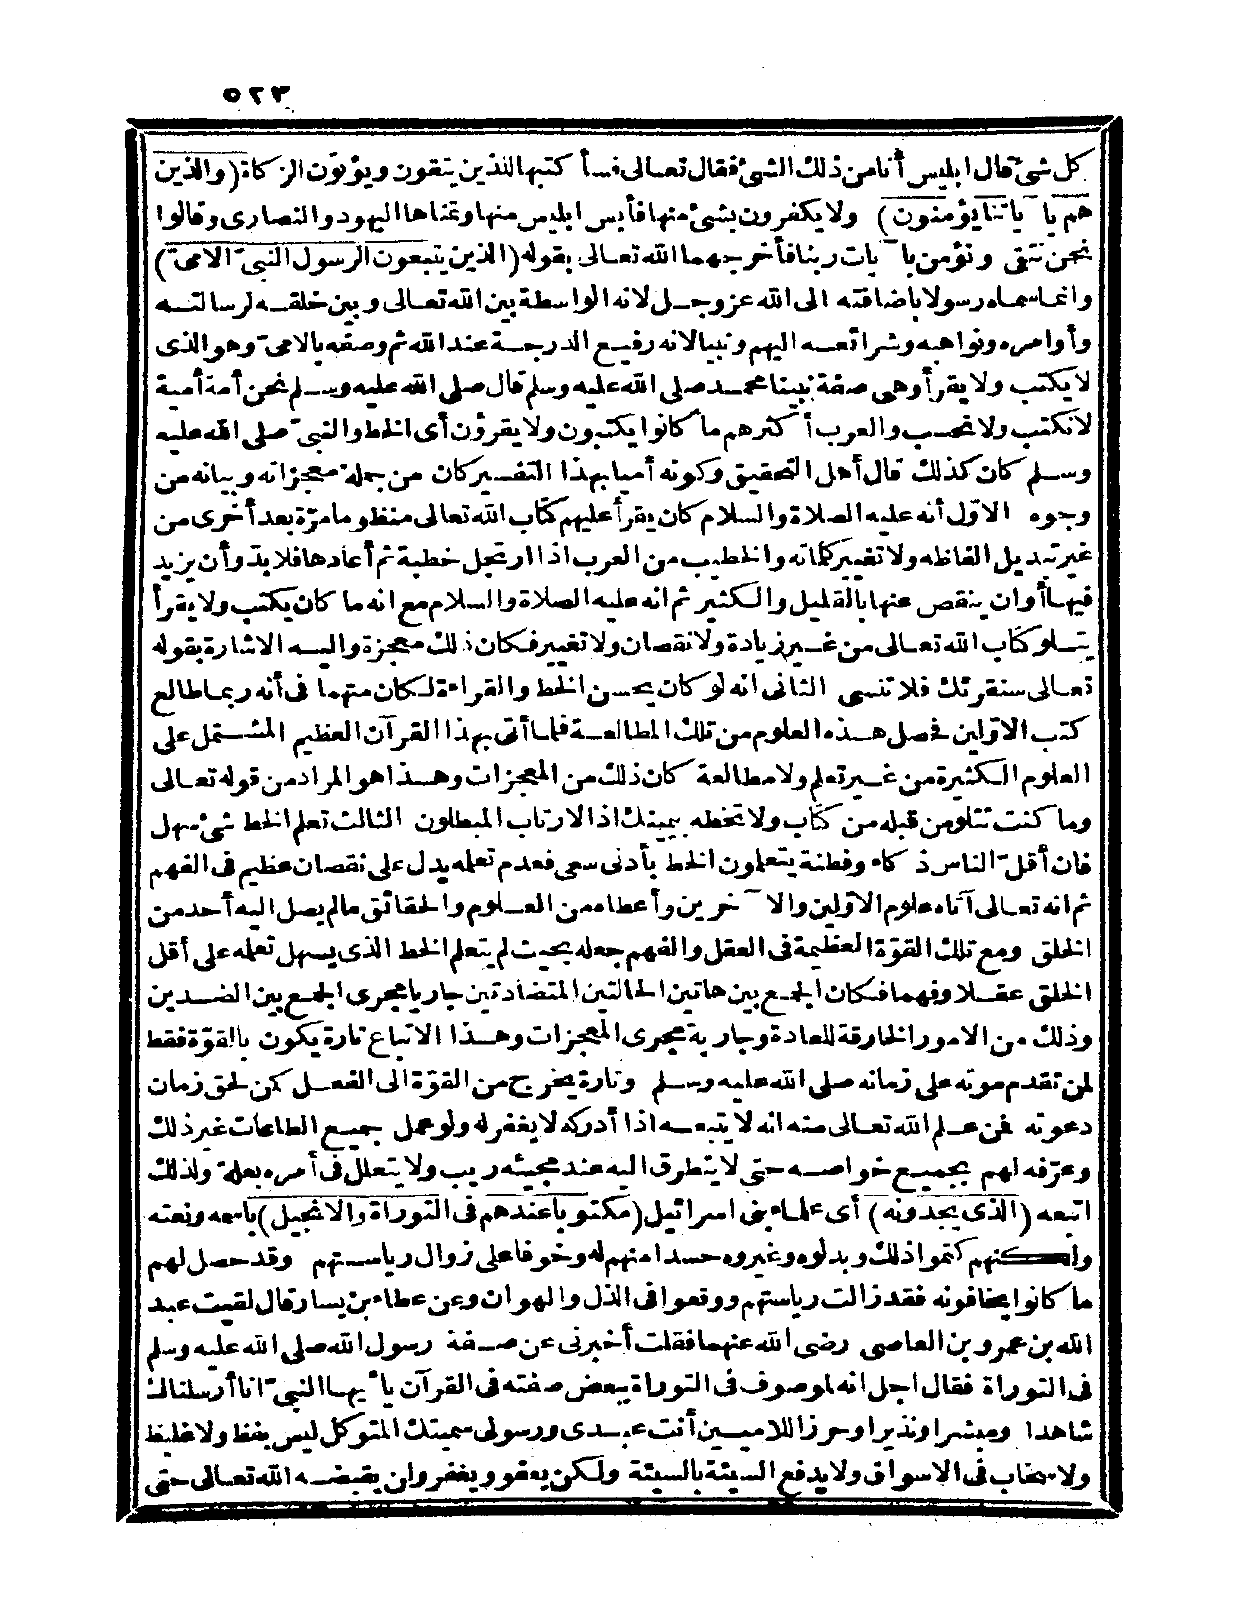 ٥٢٣
كل شئ قال ابليس أنا من ذلك الشئ فقال تعالى فسأ كتبها للذين يتقون ويؤتون الزكاة (والذين
هم بآ ياتنا يؤمنون) ولا يكفرون بشئ منها فأيس ابليس منها وتمناها اليهود والنصارى وقالوا
نحن نتقى ونؤمن بآ يات ربنا فأخرجهما الله تعالى بقوله (الذين يتبعون الرسول النبىّ الامىّ)
وانما سماه رسولا باضافته الى الله عز وجل لانه الواسطة بين الله تعالى وبين خلقه لرسالته
وأوامره ونواهيه وشرائعه اليهم ونبيا لانه رفيع الدرجة عند الله ثم وصفه بالامىّ وهو الذى
لا يكتب ولا يقرأ وهى صفة نبينا محمد صلى الله عليه وسلم قال صلى الله عليه وسلم نحن أمة أمية
لا نكتب ولا نحسب والعرب أكثرهم ما كانوا يكتبون ولا يقرؤن أى الخط والنبىّ صلى الله عليه
وسلم كان كذلك قال أهل التحقيق وكونه أميا بهذا التفسير كان من جملة معجزاته وبيانه من
وجوه الاوّل أنه عليه الصلاة والسلام كان يقرأ عليهم كتاب الله تعالى منظوما مرّة بعد أخرى من
غير تبديل الفاظه ولا تغيير كلماته والخطيب من العرب اذا ارتجل خطبة ثم أعادها فلا بدّ وأن يزيد
فيها أوان ينقص عنها بالقليل والكثير ثم انه عليه الصلاة والسلام مع انه ما كان يكتب ولا يقرأ
يتلو كتاب الله تعالى من غير زيادة ولا نقصان ولا تغيير فكان ذلك معجزة واليه الاشارة بقوله
تعالى سنقرئك فلا تنسى الثانى انه لو كان يحسن الخط والقراءة لكان متهما فى أنه ربما طالع
كتب الاوّلين فحصل هذه العلوم من تلك المطالعة فلما أتى بهذا القرآن العظيم المشتمل على
العلوم الكثيرة من غير تعلم ولا مطالعة كان ذلك من المعجزات وهذا هو المراد من قوله تعالى
وما كنت تتلو من قبله من كتاب ولا تخطه بيمينك اذا لارتاب المبطلون الثالث تعلم الخط شئ سهل
فان أقلّ الناس ذكاء وفطنة يتعلمون الخط بأدنى سعى فعدم تعلمه يدل على نقصان عظيم فى الفهم
ثم انه تعالى آتاه علوم الاوّلين والآ خرين وأعطاه من العلوم والحقائق مالم يصل اليه أحد من
الخلق ومع تلك القوّة العظيمة فى العقل والفهم جعله بحيث لم يتعلم الخط الذى يسهل تعلمه على أقل
الخلق عقلا وفهما فكان الجمع بين هاتين الحالتين المتضادتين جاريا مجرى الجمع بين الضدين
وذلك من الامور الخارقة للعادة وجارية مجرى المعجزات وهذا الاتباع تارة يكون بالقوّة فقط
لمن تقدم موته على زمانه صلى الله عليه وسلم وتارة يخرج من القوّة الى الفعل كمن لحق زمان
دعوته فمن علم الله تعالى منه انه لا يتبعه اذا أدركه لا يغفر له ولو عمل جميع الطاعات غير ذلك
وعرّفه لهم بجميع خواصه حتى لا يتطرق اليه عند مجيئه ريب ولا يتعلل فى أمره بعلة ولذلك
اتبعه (الذى يجدونه) أى علماء بنى اسرائيل (مكتوبا عندهم فى التوراة والانجيل) باسمه ونعته
ولكنهم كتموا ذلك وبدلوه وغيروه حسدا منهم له وخوفا على زوال رياستهم وقد حصل لهم
ما كانوا يخافونه فقد زالت رياستهم ووقعوا فى الذل والهوان وعن عطاء بن يسار قال لقيت عبد
الله بن عمرو بن العاصى رضى الله عنهما فقلت أخبرنى عن صفة رسول الله صلى الله عليه وسلم
فى التوراة فقال اجل انه لموصوف فى التوراة ببعض صفته فى القرآن يا أيها النبىّ انا أرسلناك
شاهدا ومبشرا ونذيرا وحرزا للاميين أنت عبدى ورسولى سميتك المتوكل ليس بفظ ولا غليظ
ولا سخاب فى الاسواق ولا يدفع السيئة بالسيئة ولكن يعفو ويغفر وان يقبضه الله تعالى حتى